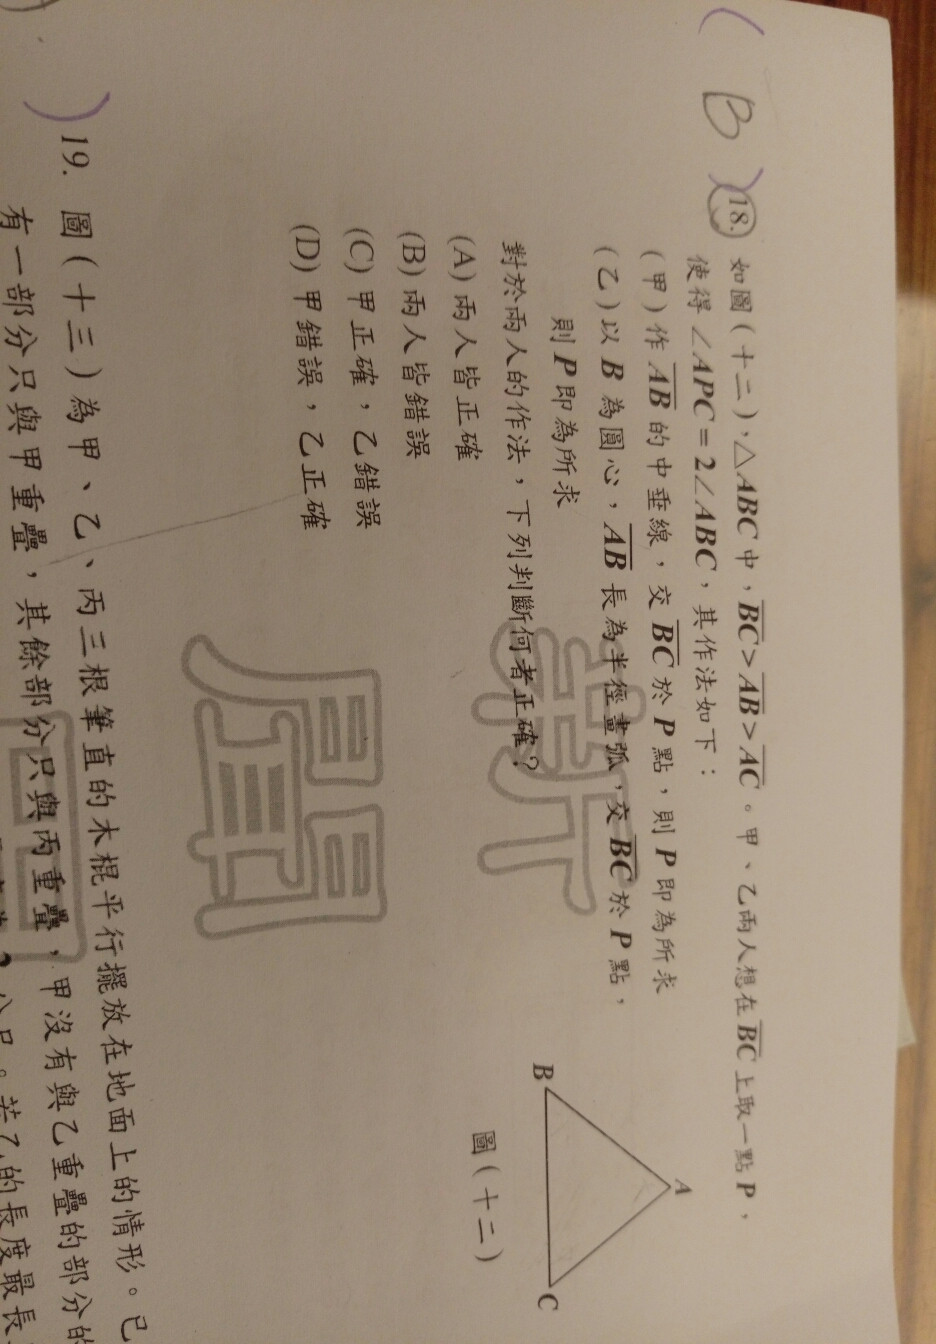 B
18. 如圖(十二)，△ABC中，BC>AB>AC。甲、乙兩人想在BC上取一點P，
使得∠APC=2∠ABC，其作法如下：
(甲)作AB的中垂線，交BC於P點，則P即為所求
(乙)以B為圓心，AB長為半徑畫弧，交BC於P點，
則P即為所求
對於兩人的作法，下列判斷何者正確？
(A)兩人皆正確
(B)兩人皆錯誤
(C)甲正確，乙錯誤
(D)甲錯誤，乙正確
A
B
C
圖(十二)
19. 圖(十三)為甲、乙、丙三根筆直的木棍平行擺放在地面上的情形。已
有一部分只與甲重疊，其餘部分只與丙重疊，甲沒有與乙重疊的部分的
公尺。若乙的長度最長